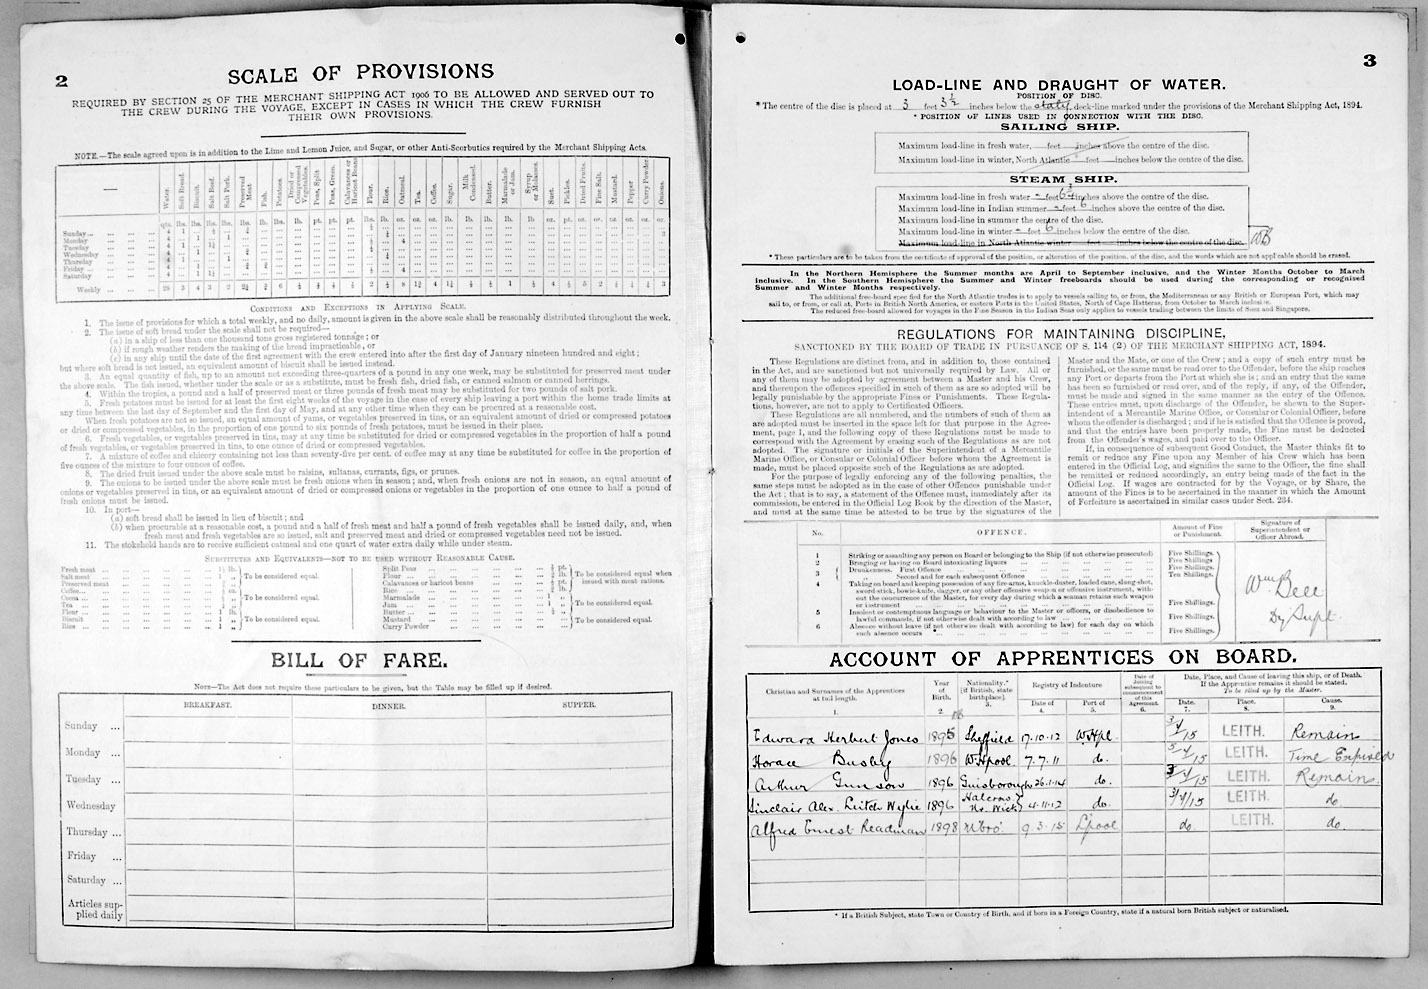 2
SCALE OF PROVISIONS
REQUIRED BY SECTION 25 OF THE MERCHANT SHIPPING ACT 1906 TO BE ALLOWED AND SERVED OUT TO
THE CREW DURING THE VOYAGE, EXCEPT IN CASES IN WHICH THE CREW FURNISH
THEIR OWN PROVISIONS.
NOTE.—The scale agreed upon is in addition to the Lime and Lemon Juice, and Sugar, or other Anti-Scorbutics required by the Merchant Shipping Acts.
Water. Soft Bread. Biscuit. Salt Beef. Salt Pork. Preserved Meat Fish. Potatoes. Dried or Compressed Vegetables. Peas, Split Peas, Green. Calavances or Haricot Beans Flour. Rice. Oatmeal. Tea. Coffee. Sugar. Milk Condensed. Butter. Marmalade or Jam. Syrup or Molasses. Suet. Pickles. Dried Fruits. Fine Salt. Mustard. Pepper Curry Powder Onions.
Sunday
Monday
Tuesday
Wednesday
Thursday
Friday
Saturday
Weekly
CONDITIONS AND EXCEPTIONS IN APPLYING SCALE.
1. The issue of provisions for which a total weekly, and no daily, amount is given in the above scale shall be reasonably distributed throughout the week.
2. The issue of soft bread under the scale shall not be required—
(a) in a ship of less than one thousand tons gross registered tonnage; or
(b) if rough weather renders the making of the bread impracticable, or
(c) in any ship until the date of the first agreement with the crew entered into after the first day of January nineteen hundred and eight;
but where soft bread is not issued, an equivalent amount of biscuit shall be issued instead.
3. An equal quantity of fish, up to an amount not exceeding three-quarters of a pound in any one week, may be substituted for preserved meat under
the above scale. The fish issued, whether under the scale or as a substitute, must be fresh fish, dried fish, or canned salmon or canned herrings.
4. Within the tropics, a pound and a half of preserved meat or three pounds of fresh meat may be substituted for two pounds of salt pork.
5. Fresh potatoes must be issued for at least the first eight weeks of the voyage in the case of every ship leaving a port within the home trade limits at
any time between the last day of September and the first day of May, and at any other time when they can be procured at a reasonable cost.
When fresh potatoes are not so issued, an equal amount of yams, or vegetables preserved in tins, or an equivalent amount of dried or compressed potatoes
or dried or compressed vegetables, in the proportion of one pound to six pounds of fresh potatoes, must be issued in their place.
6. Fresh vegetables, or vegetables preserved in tins, may at any time be substituted for dried or compressed vegetables in the proportion of half a pound
of fresh vegetables, or vegetables preserved in tins, to one ounce of dried or compressed vegetables.
7. A mixture of coffee and chicory containing not less than seventy-five per cent. of coffee may at any time be substituted for coffee in the proportion of
five ounces of the mixture to four ounces of coffee.
8. The dried fruit issued under the above scale must be raisins, sultanas, currants, figs, or prunes.
9. The onions to be issued under the above scale must be fresh onions when in season; and, when fresh onions are not in season, an equal amount of
onions or vegetables preserved in tins, or an equivalent amount of dried or compressed onions or vegetables in the proportion of one ounce to half a pound of
fresh onions must be issued.
10. In port—
(a) soft bread shall be issued in lieu of biscuit; and
(b) when procurable at a reasonable cost, a pound and a half of fresh meat and half a pound of fresh vegetables shall be issued daily, and, when
fresh meat and fresh vegetables are so issued, salt and preserved meat and dried or compressed vegetables need not be issued.
11. The stokehold hands are to receive sufficient oatmeal and one quart of water extra daily while under steam.
SUBSTITUTES AND EQUIVALENTS—NOT TO BE USED WITHOUT REASONABLE CAUSE.
Fresh meat
Salt meat
Preserved meat
To be considered equal.
Coffee
Cocoa
Tea
To be considered equal.
Flour
Biscuit
Rice
To be considered equal.
Split Peas
Flour
Calavances or haricot beans
Rice
To be considered equal when
issued with meat rations.
Marmalade
Jam
Butter
To be considered equal.
Mustard
Curry Powder
To be considered equal.
BILL OF FARE.
NOTE—The Act does not require these particulars to be given, but the Table may be filled up if desired.
BREAKFAST. DINNER. SUPPER.
Sunday ...
Monday ...
Tuesday ...
Wednesday
Thursday ...
Friday ...
Saturday ...
Articles sup-
plied daily
3
LOAD-LINE AND DRAUGHT OF WATER.
POSITION OF DISC.
*The centre of the disc is placed at 3 feet 3½ inches below the deck-line marked under the provisions of the Merchant Shipping Act, 1894.
* POSITION OF LINES USED IN CONNECTION WITH THE DISC.
SAILING SHIP.
Maximum load-line in fresh water, feet inches above the centre of the disc.
Maximum load-line in winter, North Atlantic feet inches below the centre of the disc.
STEAM SHIP.
Maximum load-line in fresh water feet inches above the centre of the disc.
Maximum load-line in Indian summer feet 6 inches above the centre of the disc.
Maximum load-line in summer the centre of the disc.
Maximum load-line in winter feet 6 inches below the centre of the disc.
Maximum load-line in North Atlantic winter feet inches below the centre of the disc.
WB
* These particulars are to be taken from the certificate of approval of the position, or alteration of the position, of the disc, and the words which are not applicable should be erased.
In the Northern Hemisphere the Summer months are April to September inclusive, and the Winter Months October to March
inclusive. In the Southern Hemisphere the Summer and Winter freeboards should be used during the corresponding or recognised
Summer and Winter Months respectively.
The additional free-board specified for the North Atlantic trades is to apply to vessels sailing to, or from, the Mediterranean or any British or European Port, which may
sail to, or from, or call at, Ports in British North America, or eastern Ports in the United States, North of Cape Hatteras, from October to March inclusive.
The reduced free-board allowed for voyages in the Fine Season in the Indian Seas only applies to vessels trading between the limits of Suez and Singapore.
REGULATIONS FOR MAINTAINING DISCIPLINE,
SANCTIONED BY THE BOARD OF TRADE IN PURSUANCE OF S. 114 (2) OF THE MERCHANT SHIPPING ACT, 1894.
These Regulations are distinct from, and in addition to, those contained
in the Act, and are sanctioned but not universally required by Law. All or
any of them may be adopted by agreement between a Master and his Crew,
and thereupon the offences specified in such of them as are so adopted will be
legally punishable by the appropriate Fines or Punishments. These Regula-
tions, however, are not to apply to Certificated Officers.
These Regulations are all numbered, and the numbers of such of them as
are adopted must be inserted in the space left for that purpose in the Agree-
ment, page 1, and the following copy of these Regulations must be made to
correspond with the Agreement by erasing such of the Regulations as are not
adopted. The signature or initials of the Superintendent of a Mercantile
Marine Office, or Consular or Colonial Officer before whom the Agreement is
made, must be placed opposite such of the Regulations as are adopted.
For the purpose of legally enforcing any of the following penalties, the
same steps must be adopted as in the case of other Offences punishable under
the Act; that is to say, a statement of the Offence must, immediately after its
commission, be entered in the Official Log Book by the direction of the Master,
and must at the same time be attested to be true by the signatures of the
Master and the Mate, or one of the Crew; and a copy of such entry must be
furnished, or the same must be read over to the Offender, before the ship reaches
any Port or departs from the Port at which she is; and an entry that the same
has been so furnished or read over, and of the reply, if any, of the Offender,
must be made and signed in the same manner as the entry of the Offence.
These entries must, upon discharge of the Offender, be shewn to the Super-
intendent of a Mercantile Marine Office, or Consular or Colonial Officer, before
whom the offender is discharged; and if he is satisfied that the Offence is proved,
and that the entries have been properly made, the Fine must be deducted
from the Offender's wages, and paid over to the Officer.
If, in consequence of subsequent Good Conduct, the Master thinks fit to
remit or reduce any Fine upon any Member of his Crew which has been
entered in the Official Log, and signifies the same to the Officer, the fine shall
be remitted or reduced accordingly, an entry being made of the fact in the
Official Log. If wages are contracted for by the Voyage, or by Share, the
amount of the Fines is to be ascertained in the manner in which the Amount
of Forfeiture is ascertained in similar cases under Sect. 234.
No. OFFENCE. Amount of Fine or Punishment. Signature of Superintendent or Officer Abroad.
1 Striking or assaulting any person on Board or belonging to the Ship (if not otherwise prosecuted) Five Shillings.
2 Bringing or having on Board intoxicating liquors Five Shillings.
3 Drunkenness. First Offence Five Shillings.
Second and for each subsequent Offence Ten Shillings.
4 Taking on board and keeping possession of any fire-arms, knuckle-duster, loaded cane, slung-shot,
sword-stick, bowie-knife, dagger, or any other offensive weapon or offensive instrument, with-
out the concurrence of the Master, for every day during which a seaman retains such weapon
or instrument Five Shillings.
5 Insolent or contemptuous language or behaviour to the Master or officers, or disobedience to
lawful commands, if not otherwise dealt with according to law Five Shillings.
6 Absence without leave (if not otherwise dealt with according to law) for each day on which
such absence occurs Five Shillings.
Wm Bell
Dy Supt.
ACCOUNT OF APPRENTICES ON BOARD.
Christian and Surnames of the Apprentices at full length. Year of Birth. Nationality.* [if British, state birthplace]. Registry of Indenture Date of Port of Date of Joining subsequent to commencement of this Agreement. Date, Place, and Cause of leaving this ship, or of Death.
If the Apprentice remains it should be stated.
To be filled up by the Master.
Date. Place. Cause.
1. 2. 3. 4. 5. 6. 7. 8. 9.
Edward Herbert Jones 1895 Sheffield 17.10.12 W. Hpl. 3/4/15 LEITH. Remain
Horace Busby 1896 W. Hpool 7.7.11 do. 5/4/15 LEITH. Time Expired
Arthur Gunson 1896 Guisborough 26.1.14 do. 3/4/15 LEITH. Remain
Sinclair Alex. Leitch Wylie 1896 Halcrow Nr. Wick 4.11.12 do. 3/4/15 LEITH. do.
Alfred Ernest Readman 1898 M'bro' 9.3.15 L'pool do. LEITH. do.
* If a British Subject, state Town or Country of Birth, and if born in a Foreign Country, state if a natural born British subject or naturalised.